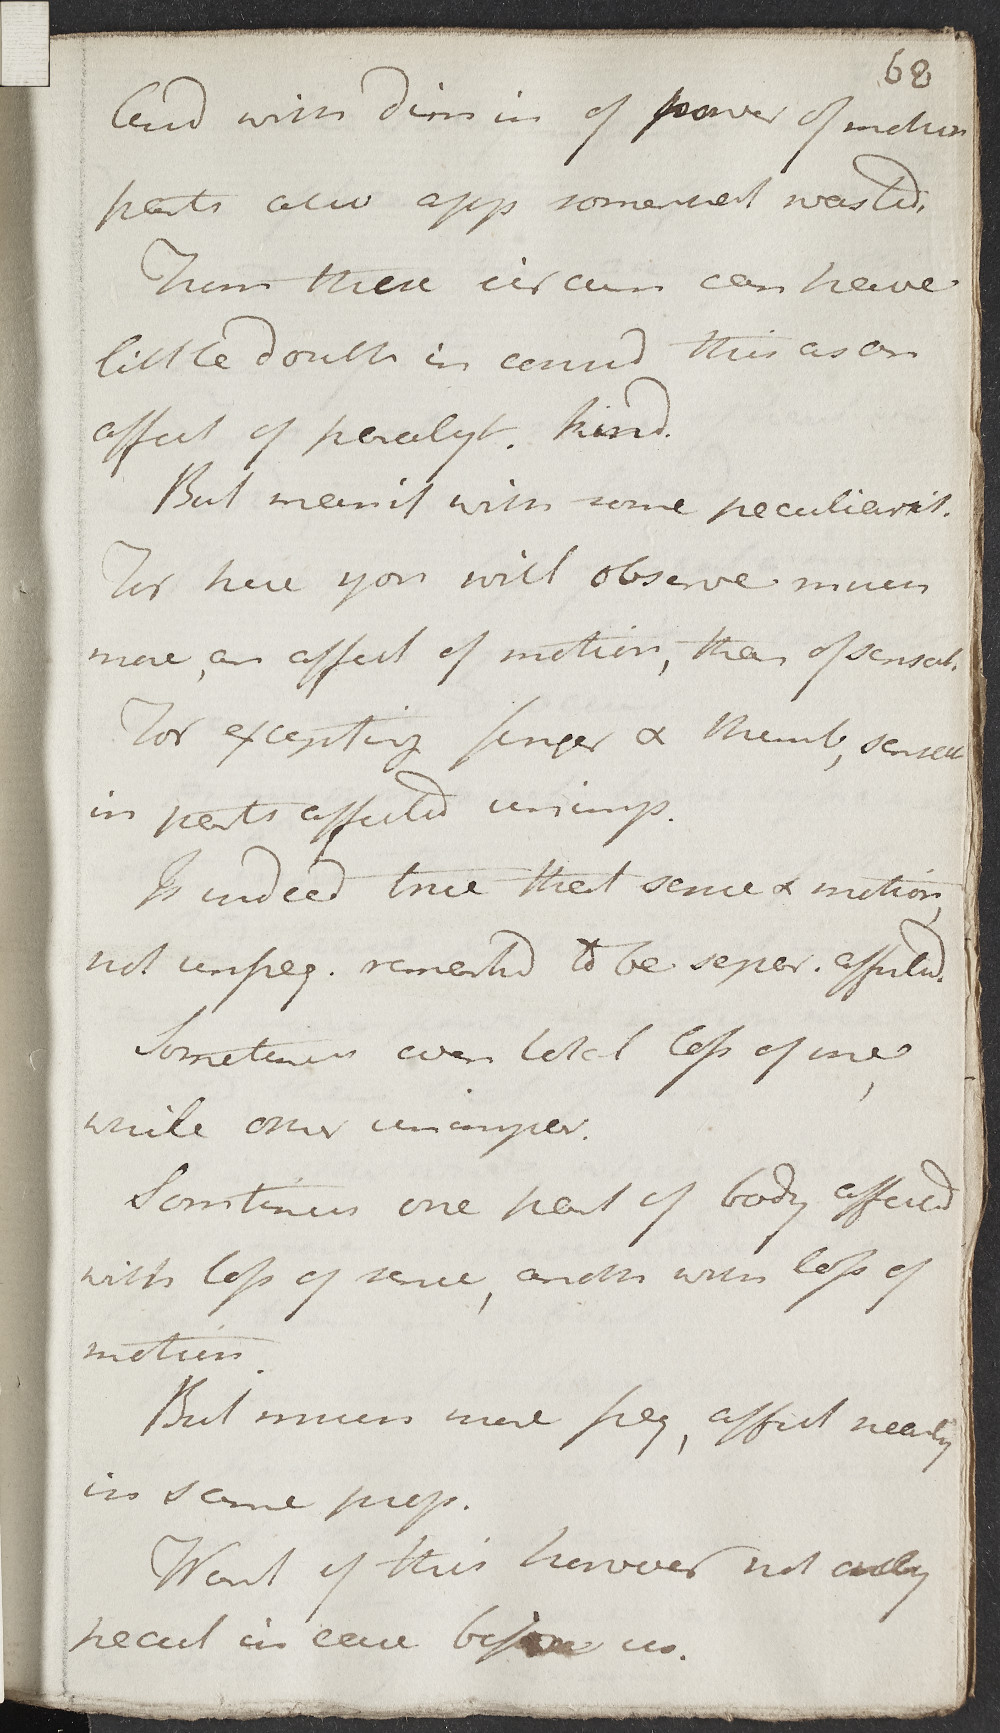 68
And with dimin of power of motion
parts also app somewhat wasted.
From these circum can have
little doubt in consid this as an
affect of paralyt. kind.
But mark it with some peculiarit.
For here you will observe much
more, an affect of motion, than of sensat.
For excepting finger & thumb, sensat
in parts affected unimp.
Is indeed true that sense & motion,
not unfreq. remarked to be separ. affected.
Sometimes even total loss of one,
while other unimpair.
Sometimes one part of body affected
with loss of sense, anoth with loss of
motion.
But much more freq, affect nearly
in same prop.
Want of this however not only
pecul in case before us.